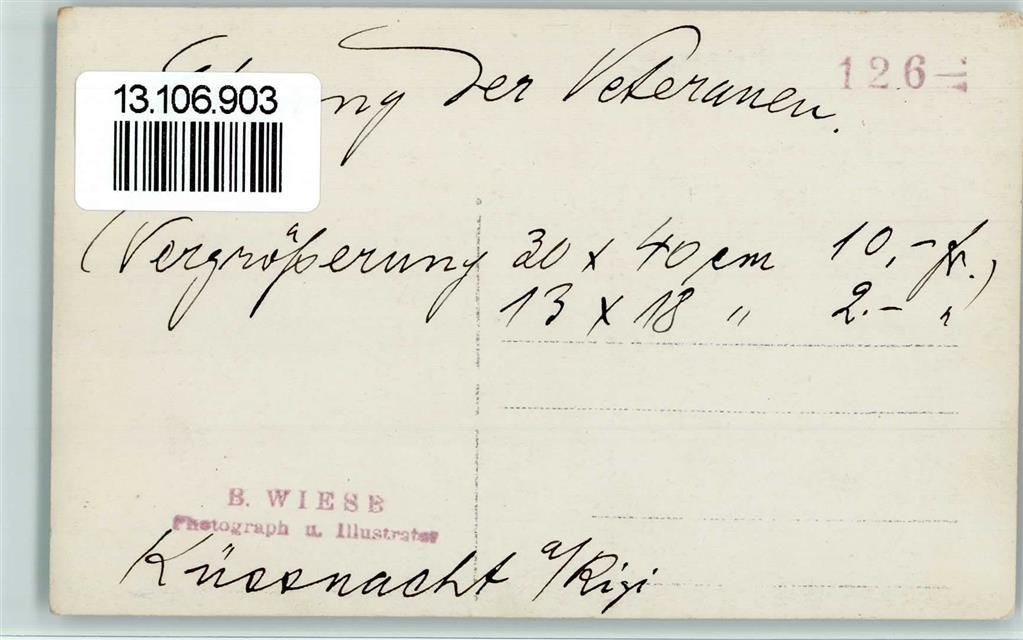 13.106.903
der Veteranen.
126
(Vergrößerung 30 x 40 cm 10,- fr.)
13 x 18 " 2.- "
B. WIESE
Photograph u. Illustrator
Küssnacht a/Rigi